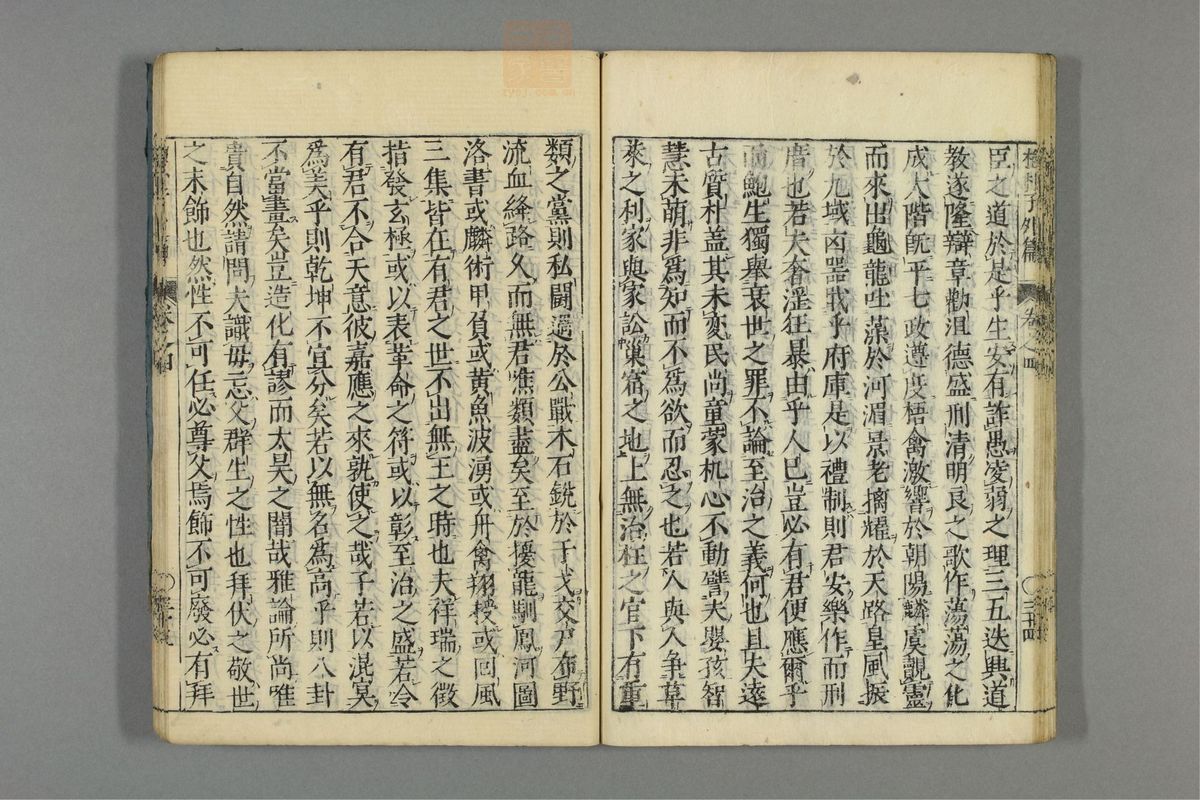 抱朴子外篇 卷之四 〇三十四
臣之道於是乎生安有詐愚凌弱之理三五迭興道
教遂隆辯章勸沮德盛刑清明良之歌作蕩蕩之化
成大階旣平七政遵度梧禽激響於朝陽麟虞覿靈
而來出龜龍吐藻於河湄景老摛耀於天路皇風振
於九域凶器戢乎府庫是以禮制則君安樂作而刑
厝也若夫奢淫狂暴由乎人巳豈必有君便應爾乎
而鮑生獨舉衰世之罪不論至治之義何也且夫遠
古質朴盖其未変民尚童蒙机心不動譬夫嬰孩智
慧未萌非爲知而不爲欲而忍之也若人與人争草
萊之利家與家訟巢窟之地上無治枉之官下有重
類之黨則私鬪過於公戰木石銳於干戈交尸布野
流血絳路久而無君噍類盡矣至於擾龍馴鳳河圖
洛書或麟術甲負或黃魚波湧或丹禽翔授或回風
三集皆在有君之世不出無王之時也夫祥瑞之徴
指發玄極或以表革命之符或以彰至治之盛若令
有君不合天意彼嘉應之來孰使之哉子若以混冥
爲美乎則乾坤不宜分矣若以無名爲高乎則八卦
不當畫矣豈造化有謬而太昊之闇哉雅論所尚唯
貴自然請問夫識毋忘父群生之性也拜伏之敬世
之末飾也然性不可任必尊父焉飾不可廢必有拜